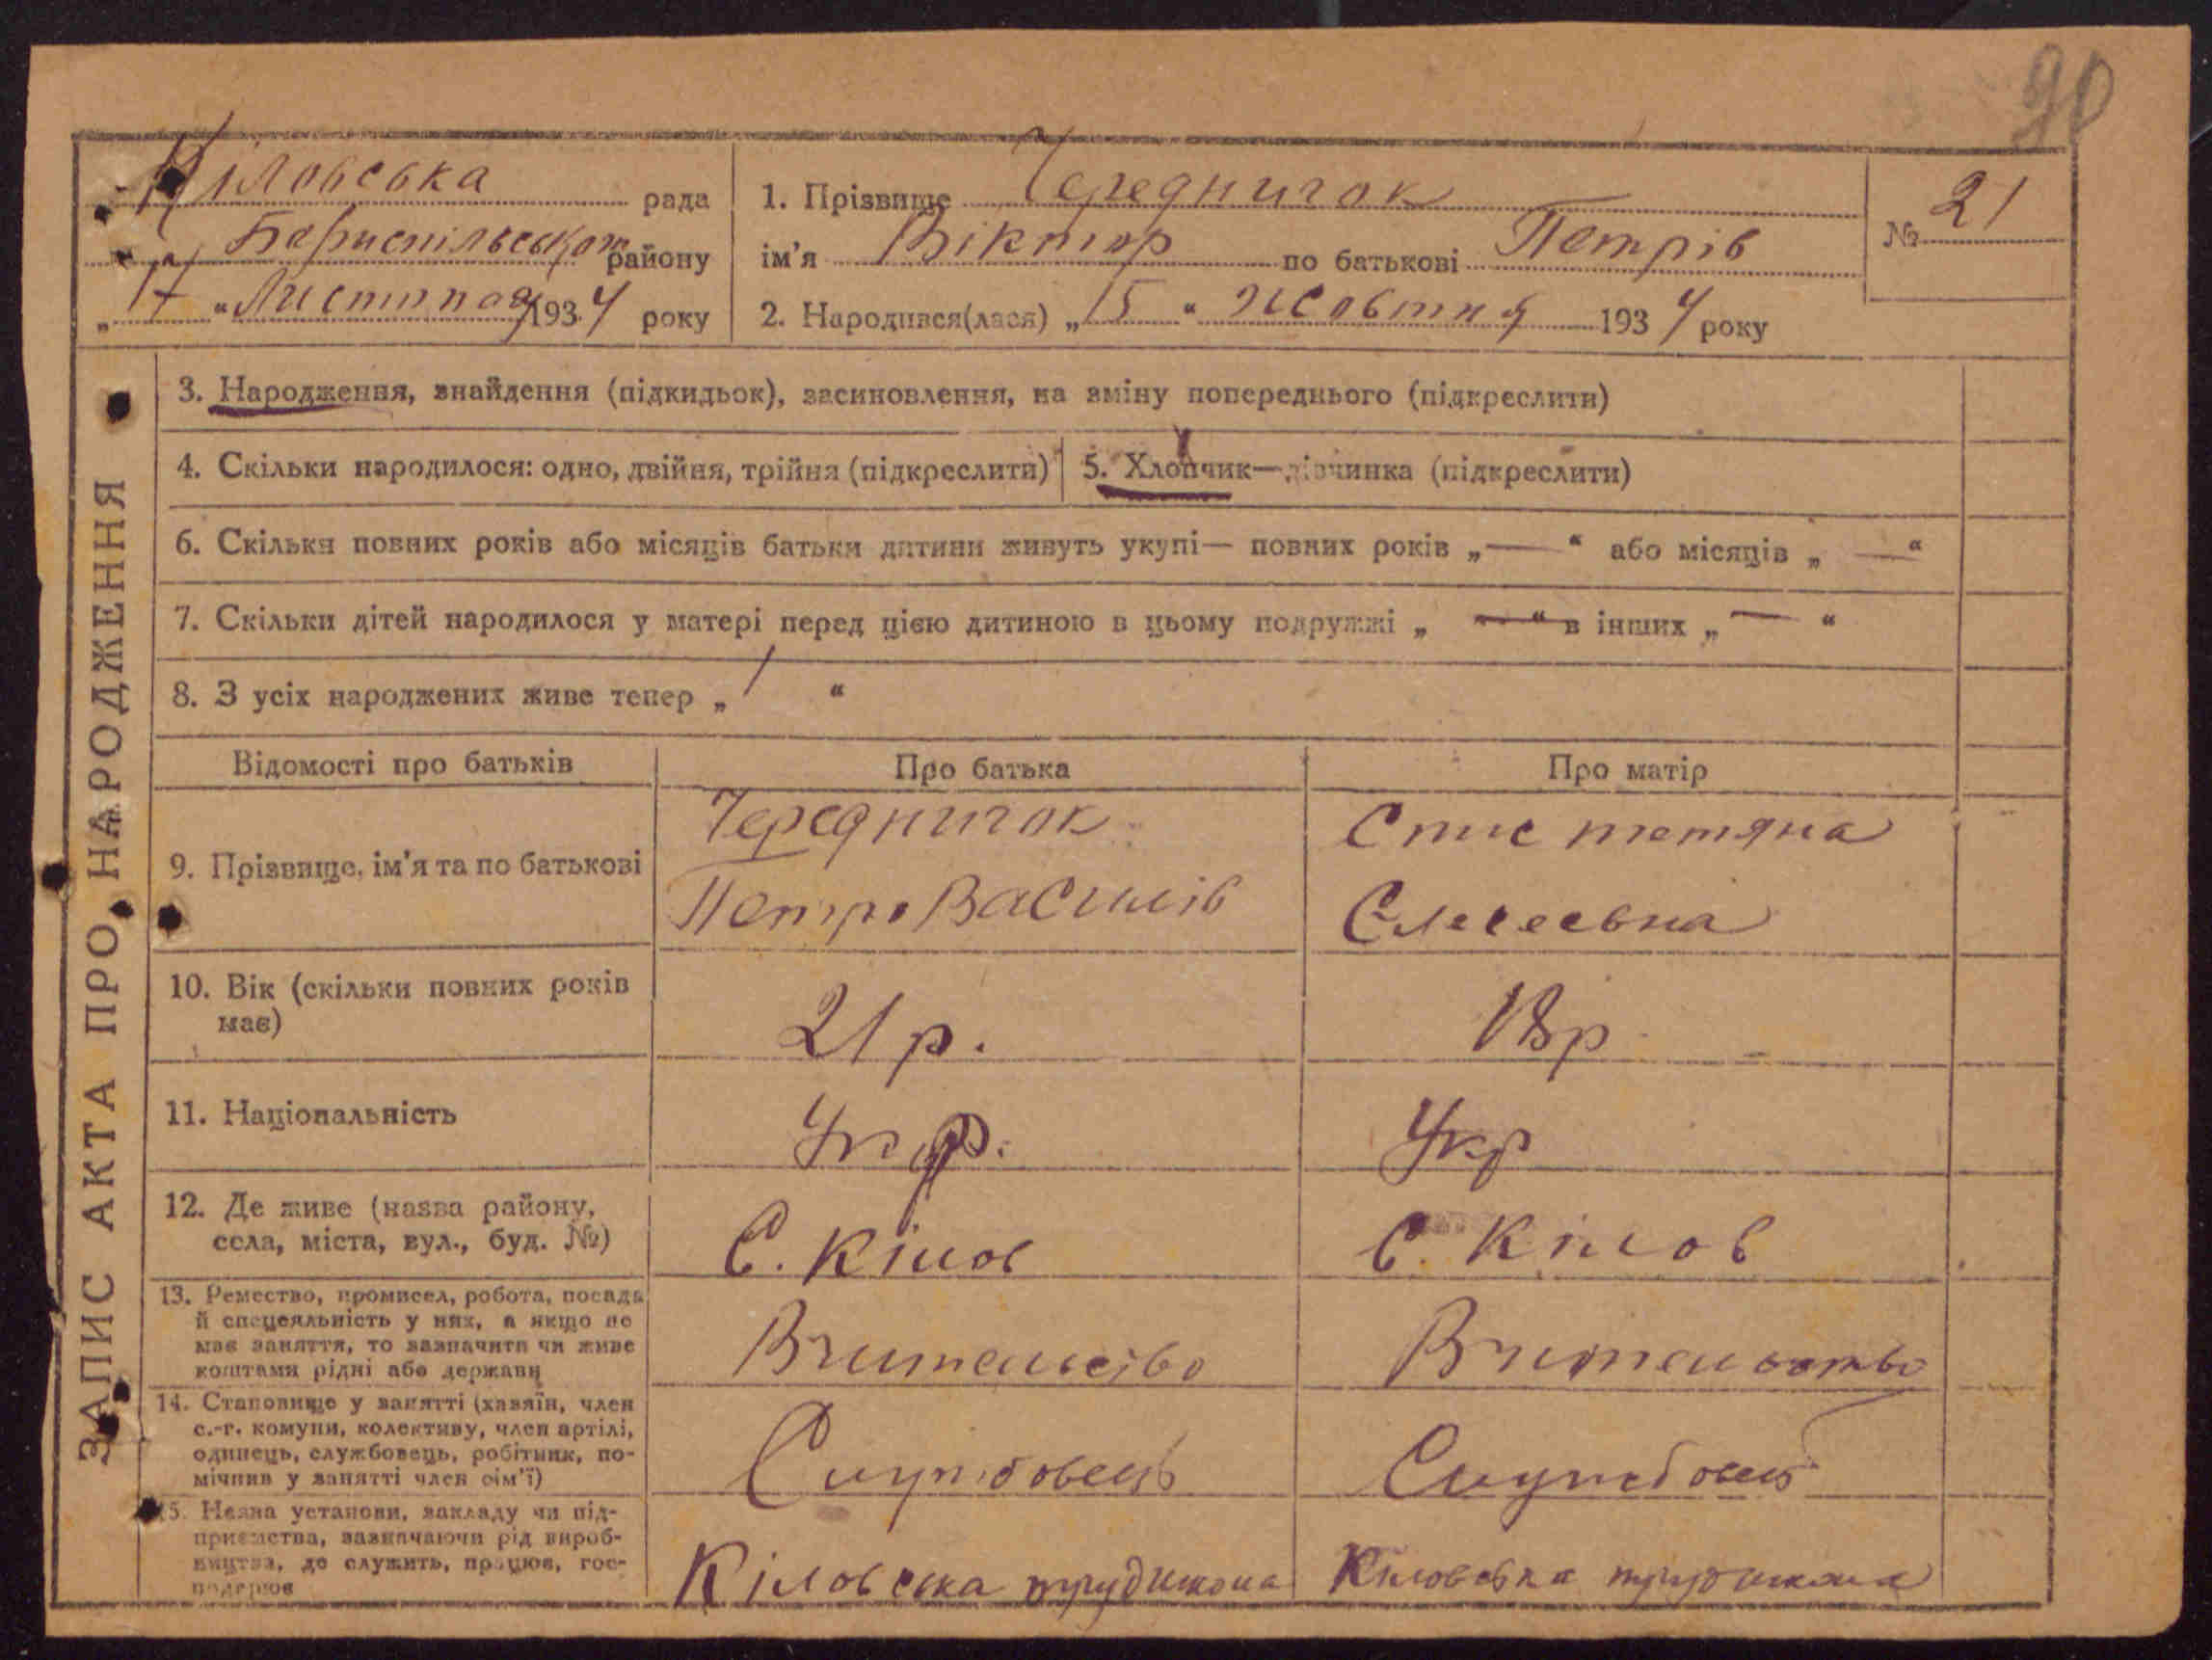 90
Кіловська рада
Бориспільського району
„17“ Листопад 1934 року
1. Прізвище Чередничок
ім'я Віктор по батькові Петрів
2. Народився(лася) „15“ Жовтня 1934 року
№ 21
ЗАПИС АКТА ПРО НАРОДЖЕННЯ
3. Народження, знайдення (підкидьок), засиновлення, на зміну попереднього (підкреслити)
4. Скільки народилося: одно, двійня, трійня (підкреслити)
5. Хлопчик—дівчинка (підкреслити)
6. Скільки повних років або місяців батьки дитини живуть укупі— повних років „—“ або місяців „—“
7. Скільки дітей народилося у матері перед цією дитиною в цьому подружжі „—“ в інших „—“
8. З усіх народжених живе тепер „1“
Відомості про батьків
Про батька
Про матір
9. Прізвище, ім'я та по батькові
Чередничок
Петро Василів
тетяна
10. Вік (скільки повних років
має)
21 р.
18 р
11. Національність
Укр.
Укр
12. Де живе (назва району,
села, міста, вул., буд. №)
С. Кілов
С. Кілов
13. Ремество, промисел, робота, посада
й спецеяльність у них, а якщо не
має заняття, то зазначити чи живе
коштами рідні або держави
Вчительство
Вчительство
14. Становище у занятті (хазяїн, член
с.-г. комуни, колективу, член артілі,
одинець, службовець, робітник, по-
мічник у занятті член сім'ї)
Службовець
Службовець
15. Назва установи, закладу чи під-
приємства, зазначаючи рід вироб-
ництва, де служить, працює, гос-
подарює
Кіловська трудшкола
Кіловська трудшкола